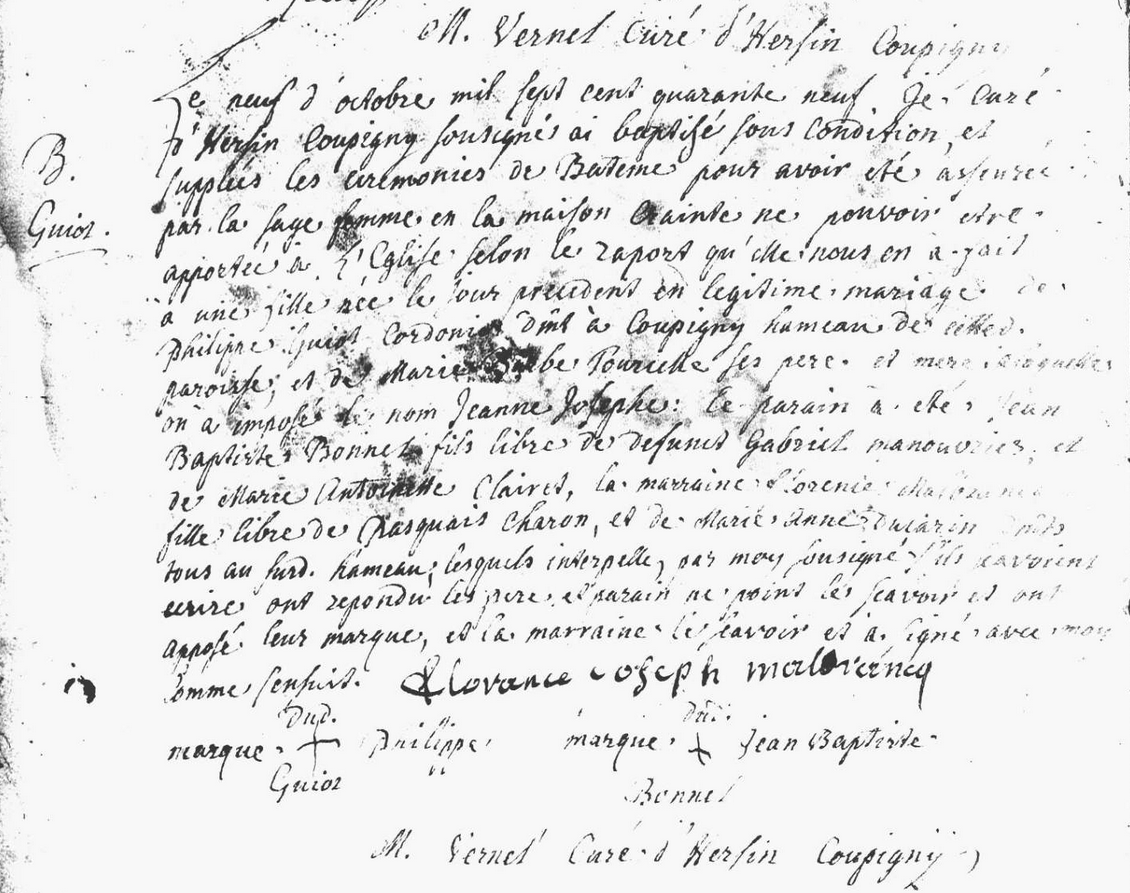 M. Vernel Curé d'Hersin Coupigny
Le neuf d'octobre mil sept cent quarante neuf. Je Curé
B.
d'Hersin Coupigny sousigné ai baptisé sous condition, et
supplées les ceremonies de Bateme pour avoir eté asseurée
Guiot.
par la sage femme en la maison crainte ne pouvoir etre
apportée à l'Eglise selon le raport qu'elle nous en a fait
à une fille née le jour precedent en legitime mariage de
Philippe Guiot Cordonier dmt à Coupigny hameau de cette
paroisse, et de Marie Barbe ses pere et mere à laquelle
on à imposé le nom Jeanne Josephe: le parain à eté Jean
Baptiste Bonnel fils libre de defunct Gabriel manouvrier, et
de Marie Antoinette Clairet, la marraine
fille libre de Pasquais Charon, et de Marie Anne Ducarin
tous au surd. hameau; lesquels interpelle, par moy sousigné s'ils scavoient
ecrire ont repondu les pere et parain ne point le scavoir et ont
apposé leur marque, et la marraine le scavoir et a signé avec moy
comme sensuit. Clorance Joseph malbrancq
dud. dud.
marque + Philippe marque + Jean Baptiste
Guiot Bonnel
M. Vernel Curé d'Hersin Coupigny